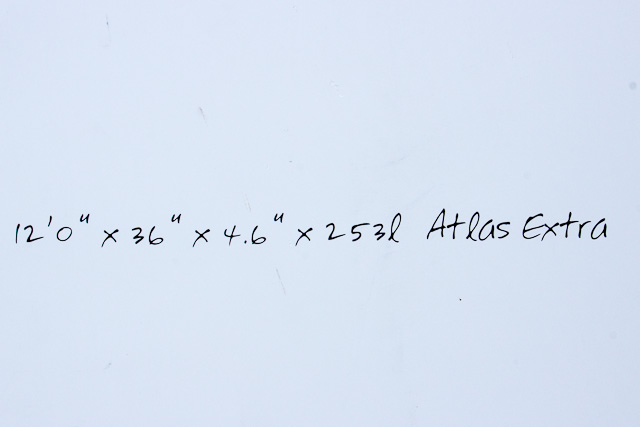 12'0" x 36" x 4.6" x 253l Atlas Extra